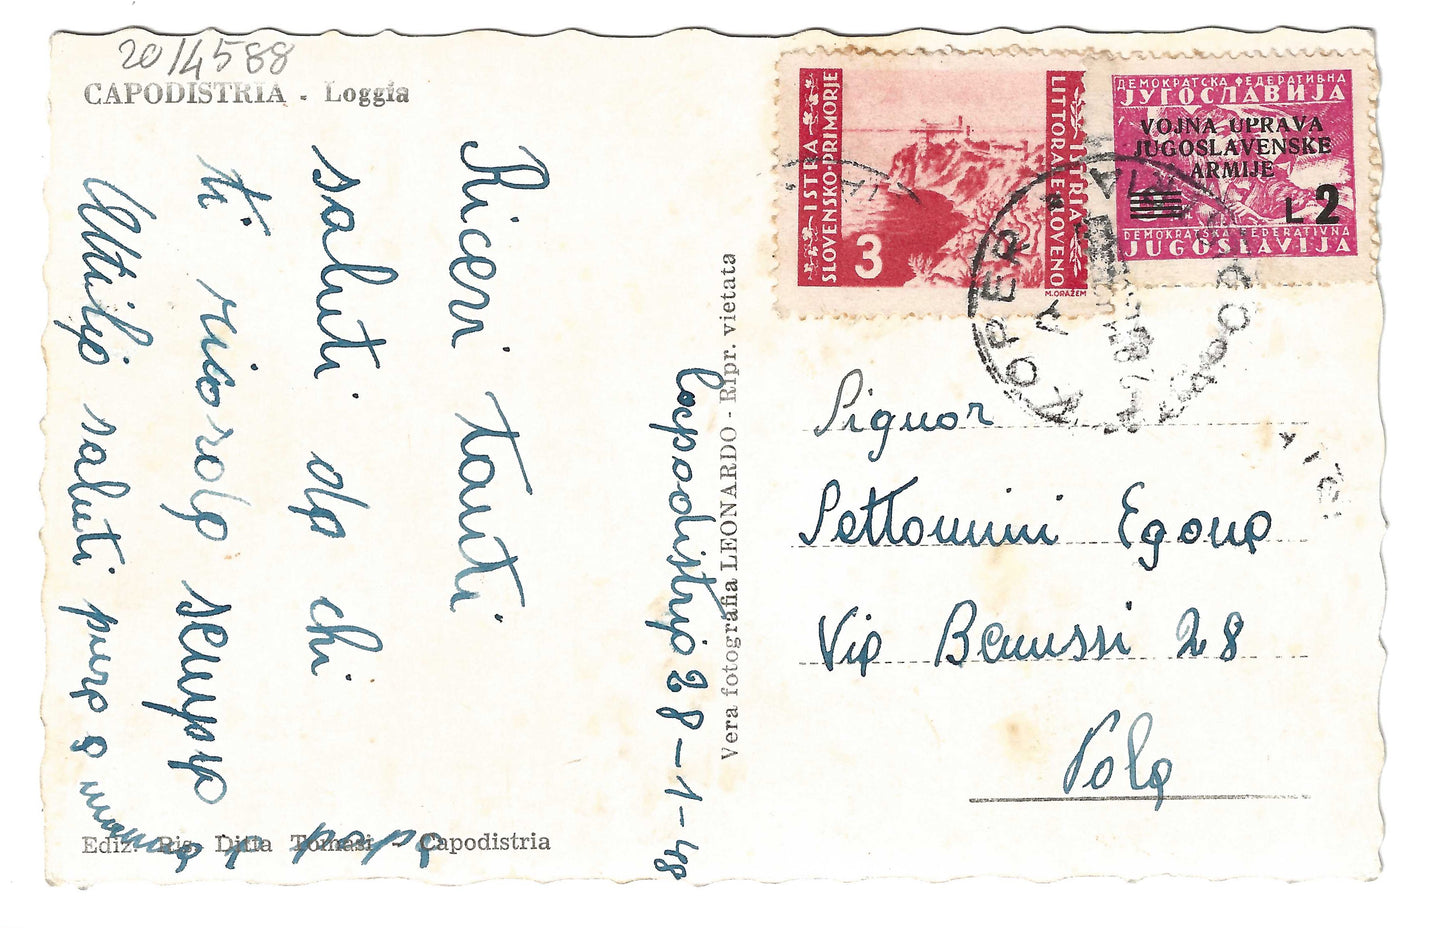 20/4588
CAPODISTRIA - Loggia
Ricevi tanti
saluti da chi
ti ricorda sempre
saluti
Capodistria 28-1-48
Vera fotografia LEONARDO - Ripr. vietata
Ediz. Ris. Ditta Tomasi - Capodistria
ISTRA
SLOVENSKO PRIMORJE
LITTORALE SLOVENO
ISTRIA
3
M.ORAŽEM
ДЕМОКРАТСКА ФЕДЕРАТИВНА
ЈУГОСЛАВИЈА
VOJNA UPRAVA
JUGOSLAVENSKE
ARMIJE
L 2
DEMOKRATSKA FEDERATIVNA
JUGOSLAVIJA
KOPER
Signor
Settomini Egone
Via Benussi 28
Pola